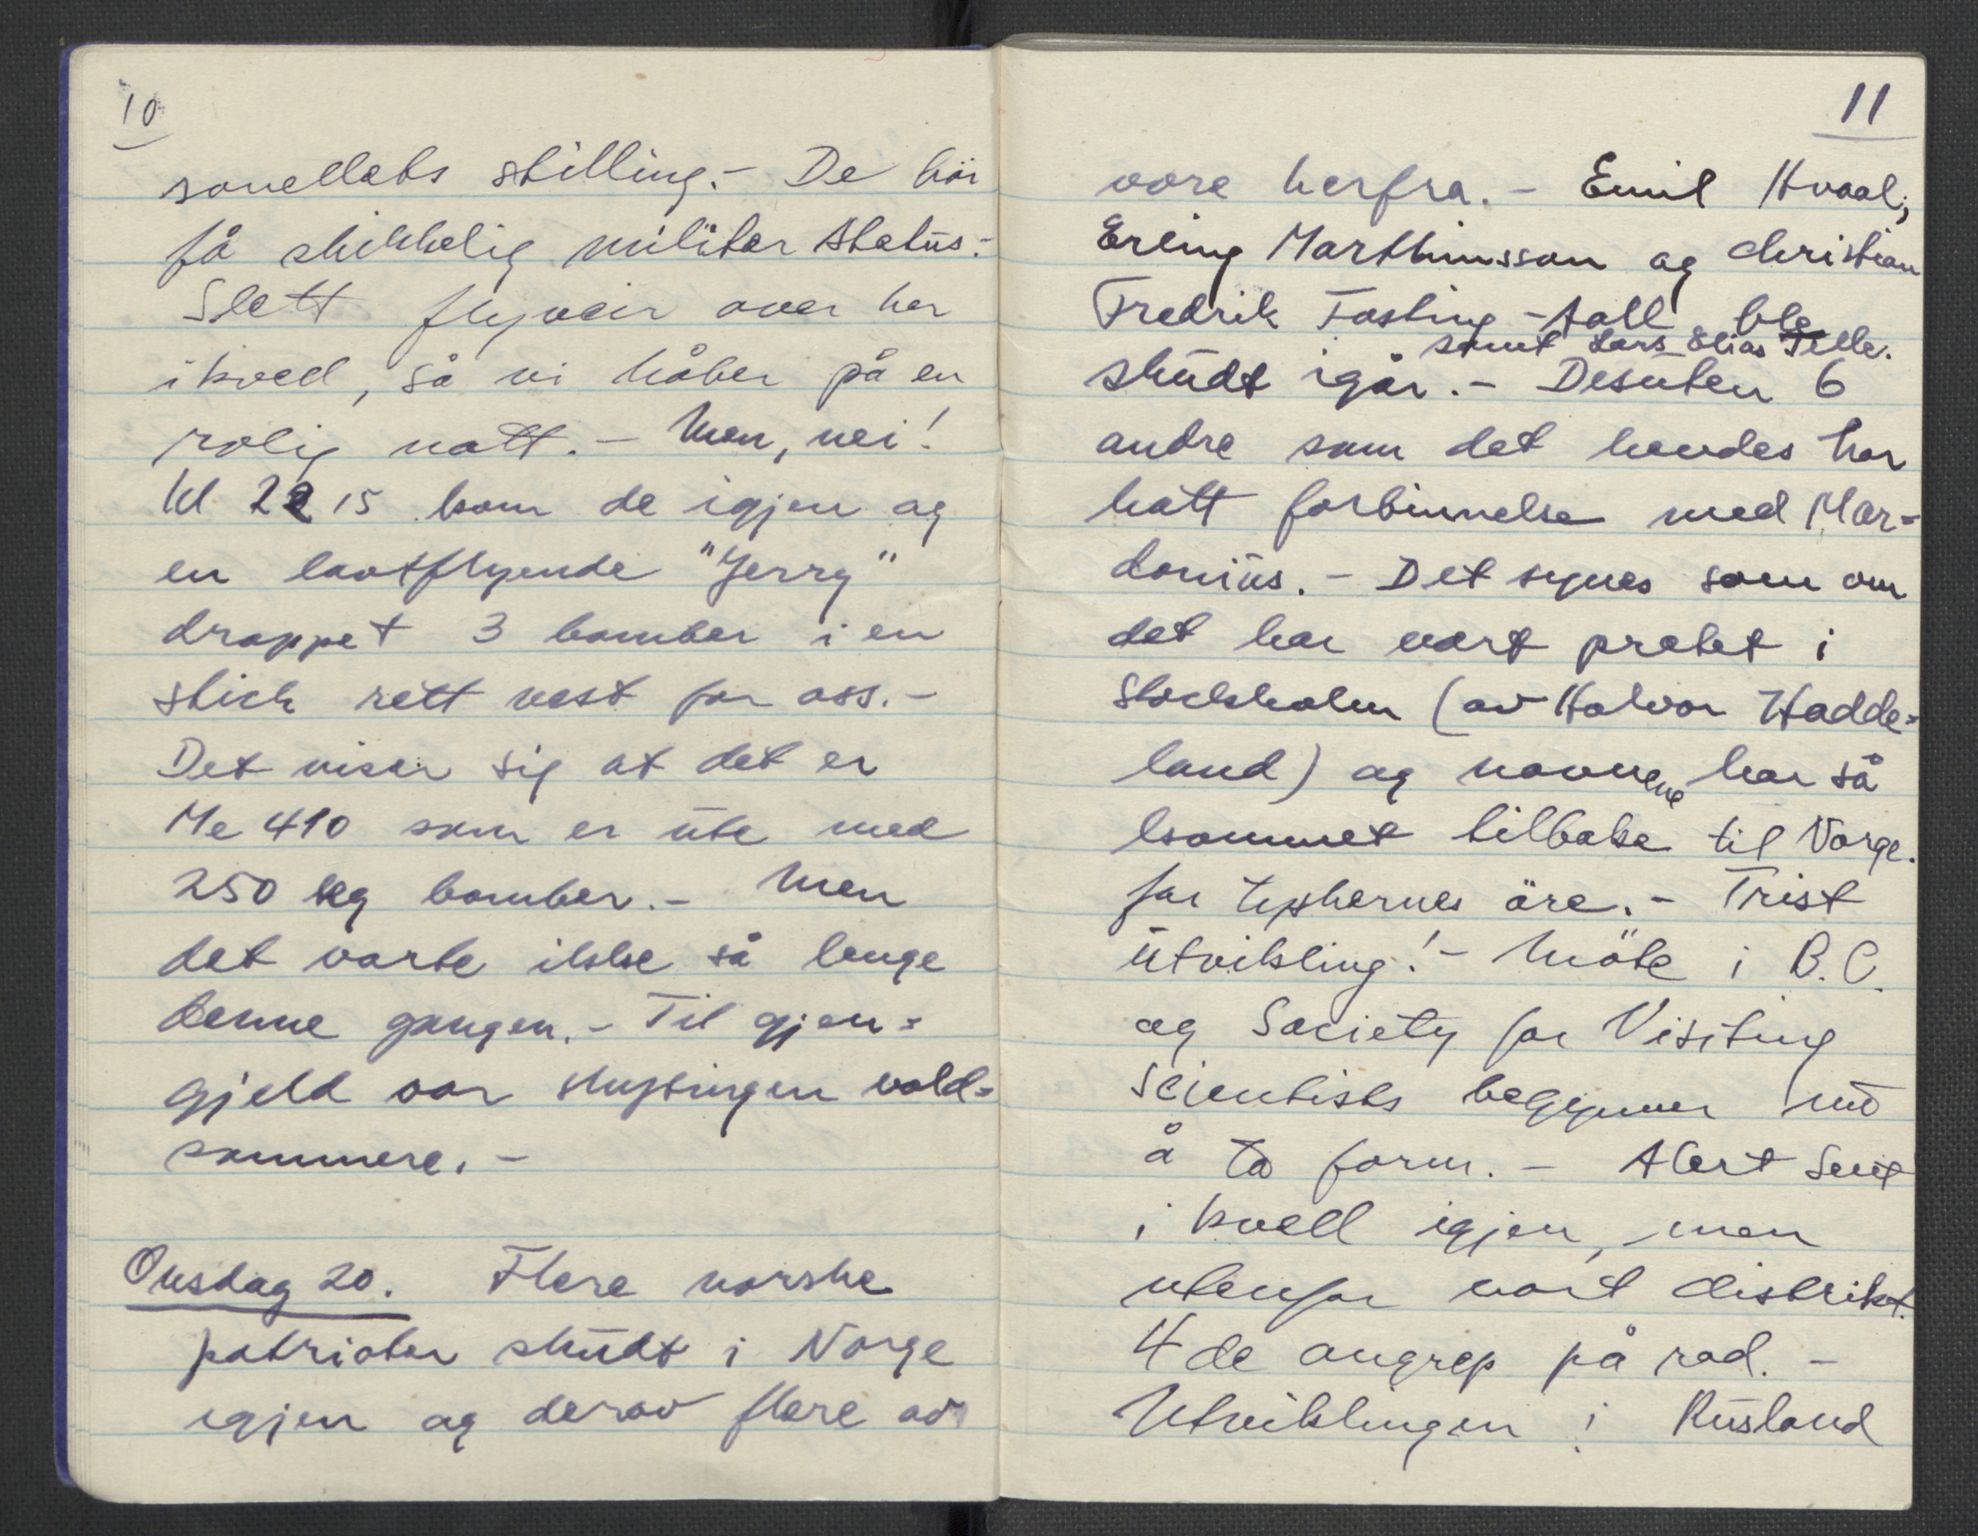 10
sonellets stilling.- De bör
få skikkelig militær status.-
Slett flyveir over her
ikveld, så vi håber på en
rolig natt. - Men, nei!
Kl 2215 kom de igjen og
en lavtflyende "Jerry"
droppet 3 bomber i en
stick rett vest for oss.-
Det viser sig at det er
Me 410 som er ute med
250 kg bomber.- Men
det varte ikke så lenge
denne gangen.- Til gjen=
gjeld var skytingen vold=
sommere.-
Onsdag 20. Flere norske
patrioter skudt i Norge
igjen og derav flere av
11
våre herfra. - Emil Hvaal,
Erling Marthinsson og Christian
Fredrik Fasting-Aall ble
samt Lars Elias Telle.
skudt igår.- Desuten 6
andre som det hendes har
hatt forbinnelse med Mar=
donius. - Det synes som om
det har vært pratet i
Stockholm (av Halvor Hadde=
land) og navnene har så
kommet tilbake til Norge.
for tyskernes öre.- Trist
utvikling!- Möte i B.C.
og Society for Visiting
Scientists begynner nå
å ta form. - Alert sent
i kvell igjen, men
utenfor vårt distrikt.
4de angrep på rad. -
Utviklingen i Rusland